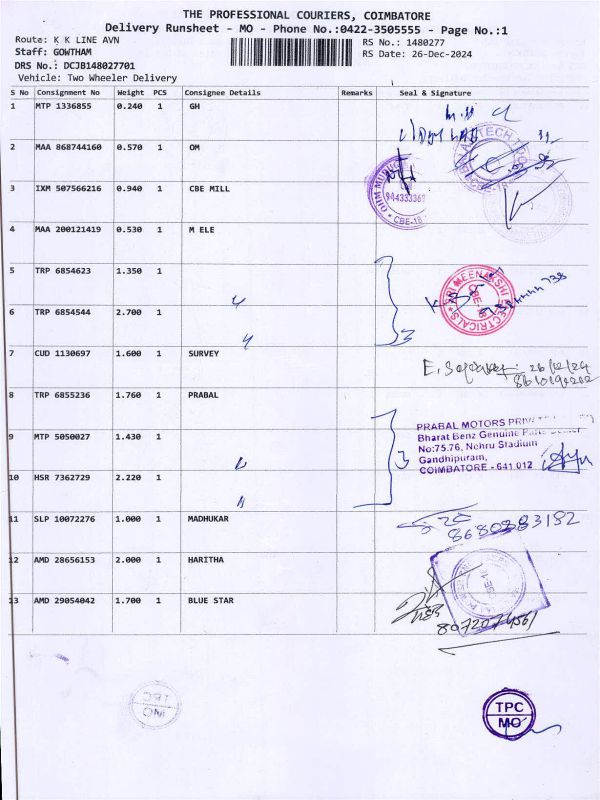 THE PROFESSIONAL COURIERS, COIMBATORE
Delivery Runsheet - MO - Phone No.:0422-3505555 - Page No.:1
Route: K K LINE AVN
RS No.: 1480277
Staff: GOWTHAM
RS Date: 26-Dec-2024
DRS No.: DCJB148027701
Vehicle: Two Wheeler Delivery
S No Consignment No Weight PCS Consignee Details Remarks Seal & Signature
1 MTP 1336855 0.240 1 GH
2 MAA 868744160 0.570 1 OM
3 IXM 507566216 0.940 1 CBE MILL
CBE-18
4 MAA 200121419 0.530 1 M ELE
5 TRP 6854623 1.350 1
SRI MEENAKSHI ELECTRICALS
CBE-18
6 TRP 6854544 2.700 1
3
7 CUD 1130697 1.600 1 SURVEY
26/12/24
8 TRP 6855236 1.760 1 PRABAL
PRABAL MOTORS
Bharat Benz Genuine
9 MTP 5050027 1.430 1
No:75.76, Nehru Stadium
Gandhipuram,
COIMBATORE - 641 012
3
10 HSR 7362729 2.220 1
11 SLP 10072276 1.000 1 MADHUKAR
12 AMD 28656153 2.000 1 HARITHA
13 AMD 29054042 1.700 1 BLUE STAR
TPC
MO